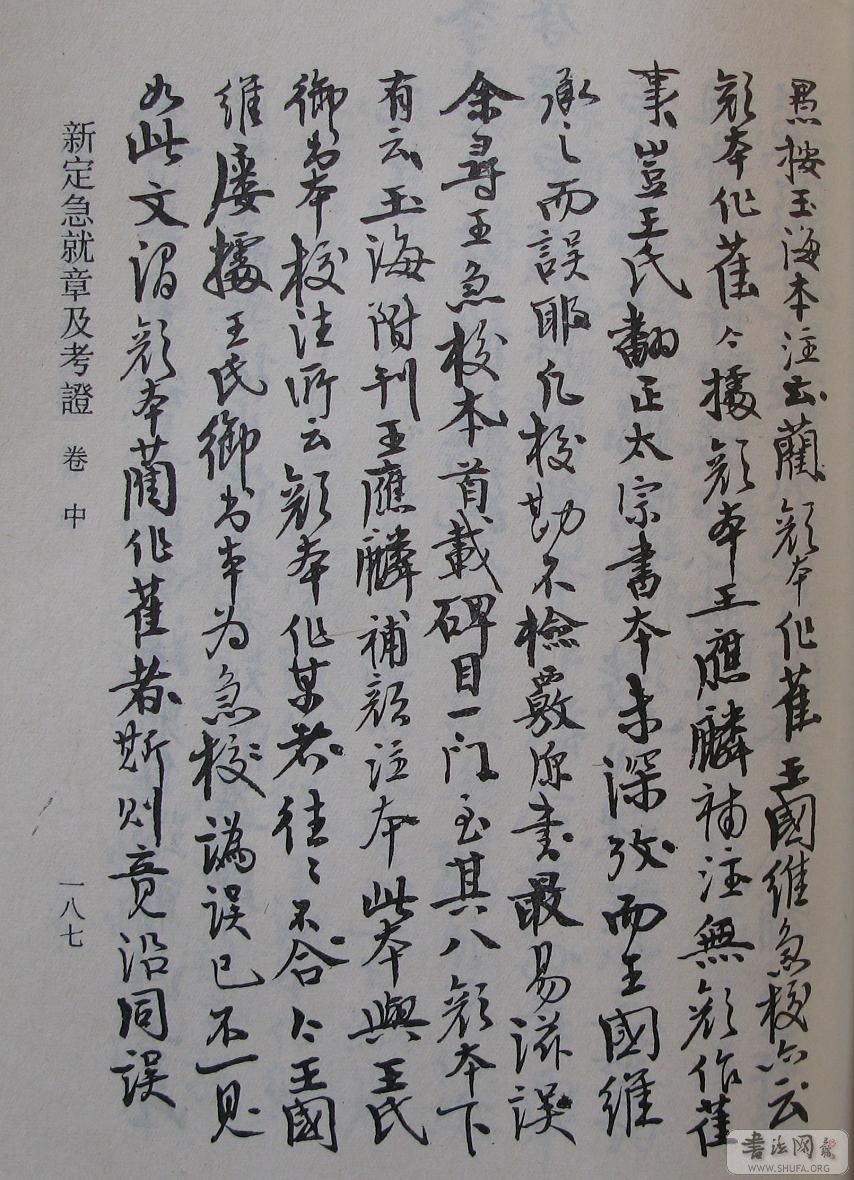 愚按玉海本注云藺顏本作萑王國維急校亦云
顏本作萑今據顏本王應麟補注無顏作萑
事豈王氏翻正太宗書本未深攷而王國維
承之而誤耶凡校勘不檢覈原書最易滋誤
余尋王急校本首載碑目一門至其八顏本下
有云玉海附刊王應麟補顏注本此本與王氏
御書本校注所云顏本作某者往往不合今王國
維屢據王氏御書本為急校譌誤已不一見
如此文謂顏本藺作萑者斯則竟沿同誤
新定急就章及考證 卷中
一八七
書法网
WWW.SHUFA.ORG